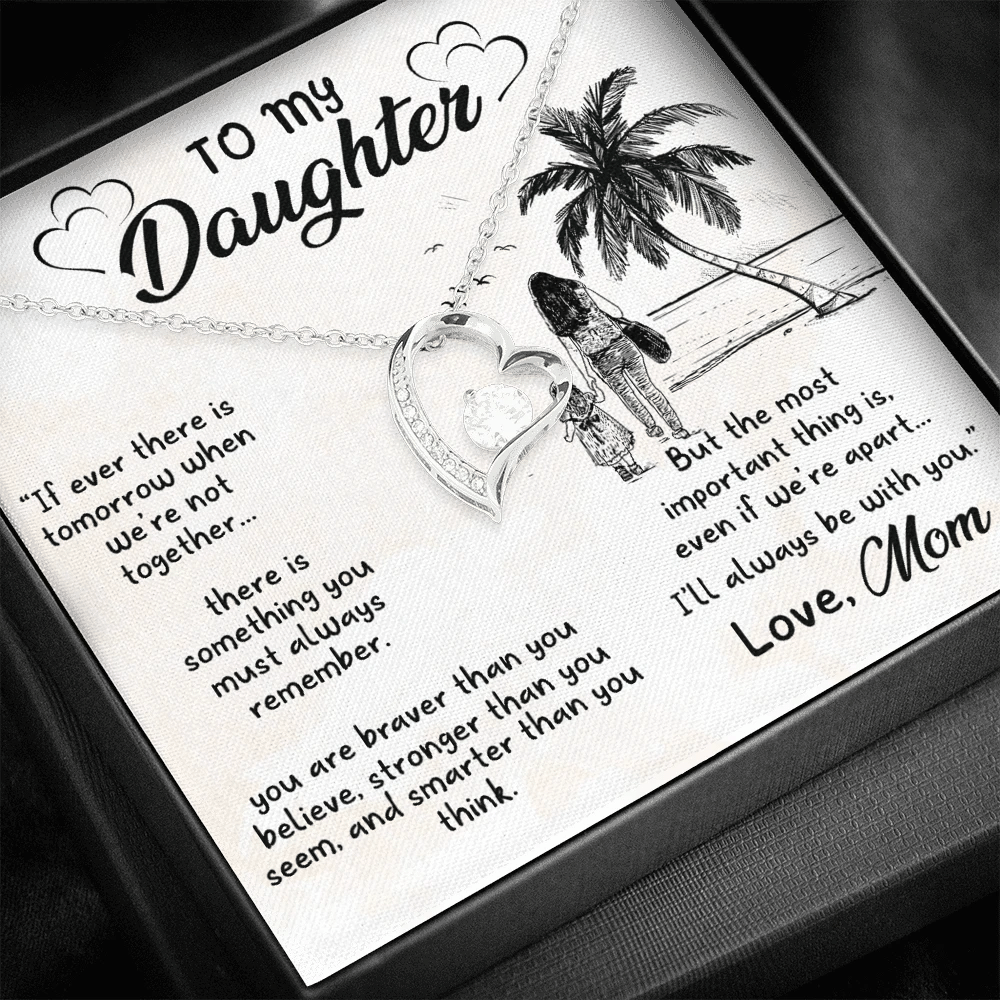 TO MY
Daughter
"If ever there is
tomorrow when
we're not
together...
there is
something you
must always
remember.
you are braver than you
believe, stronger than you
seem, and smarter than you
think.
But the most
important thing is,
even if we're apart...
I'll always be with you."
Love, Mom